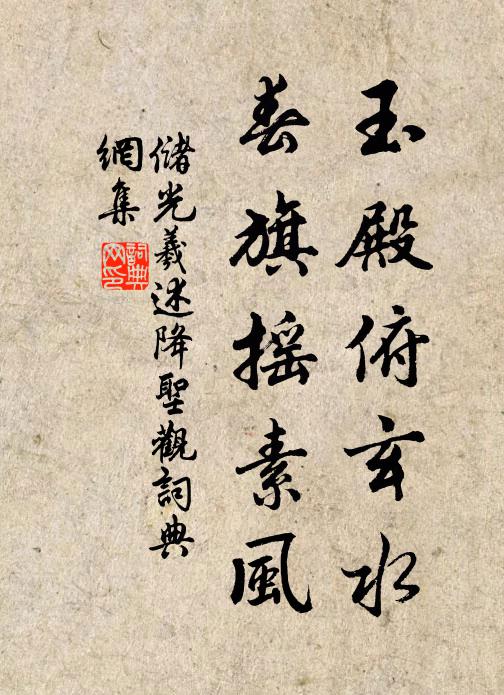 玉殿俯玄水
春旗摇素風
儲光羲述降聖觀詞典
網集
詞典
网印